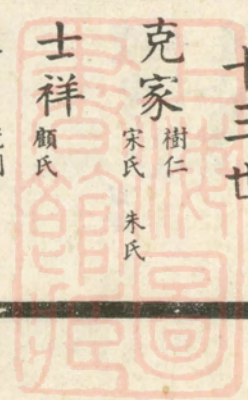 十三世
克家
樹仁
宋氏 朱氏
士祥
顧氏